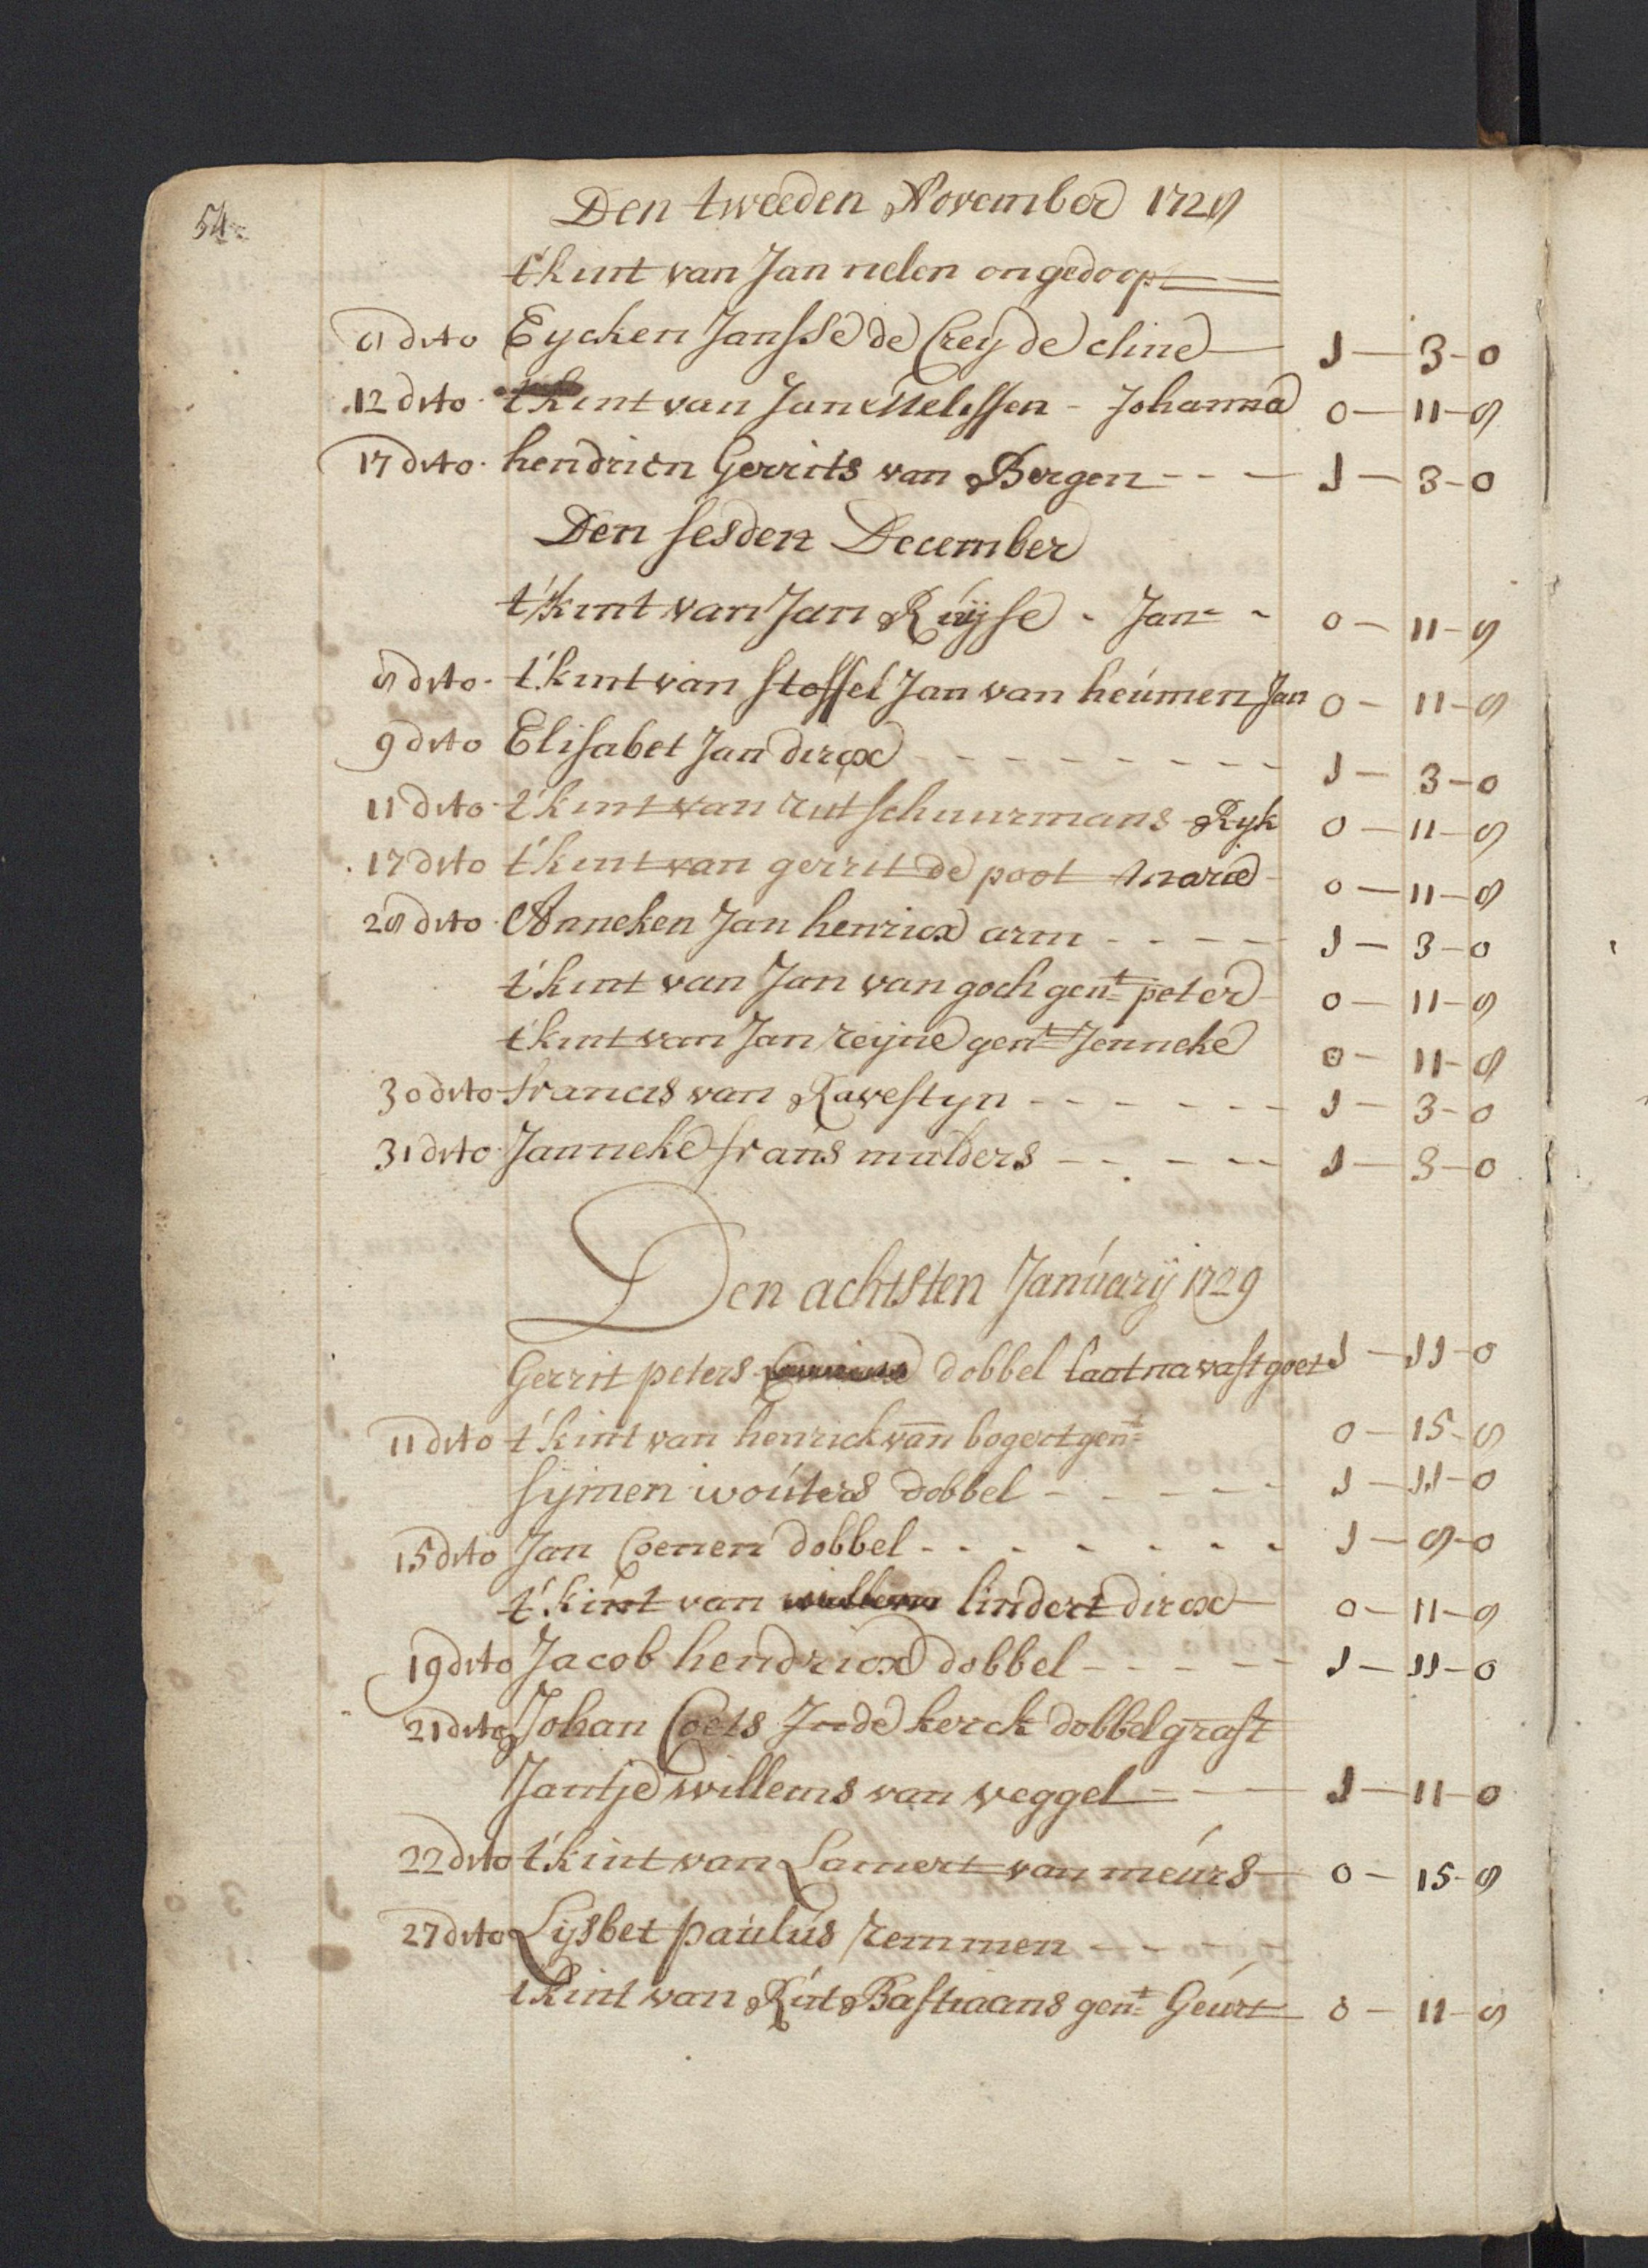 54
Den tweeden November 1728
t'kint van Jan nelen ongedoopt
8 dito Eycken Jansse de Creyde cline 1 - 3 - 0
12 dito t'kint van Jan Melissen - Johanna 0 - 11 - 8
17 dito hendrien Gerrits van Bergen 1 - 3 - 0
Den sesden December
t'kint van Jan Ruijse - Jan 0 - 11 - 8
8 dito t'kint van stoffel Jan van heúmen Jan 0 - 11 - 8
9 dito Elisabet Jan dircx 1 - 3 - 0
11 dito t'kint van rut schuurmans Ryk 0 - 11 - 8
17 dito t'kint van gerrit de poot maria 0 - 11 - 8
28 dito Anneken Jan henricx arm 1 - 3 - 0
t'kint van Jan van goch gent peter 0 - 11 - 8
t'kint van Jan reijne gent Jenneke 0 - 11 - 8
30 dito francis van Ravestyn 1 - 3 - 0
31 dito Janneke frans mulders 1 - 3 - 0
Den achtsten Janúarij 1729
Gerrit peters dobbel laat na vast goet 1 - 11 - 0
11 dito t'kint van henrick van bogert gent 0 - 15 - 8
sijmen woúters dobbel 1 - 11 - 0
15 dito Jan Coenen dobbel 1 - 9 - 0
t'kint van willem lindert dircx 0 - 11 - 8
19 dito Jacob hendricx dobbel 1 - 11 - 0
21 dito Johan Coets In de kerck dobbel graft
Jantje willems van veggel 1 - 11 - 0
22 dito t'kint van Lamert van meúrs 0 - 15 - 8
27 dito Lijsbet paúlús remmen
t'kint van Rút Bastiaans gent Geúrt 0 - 11 - 8